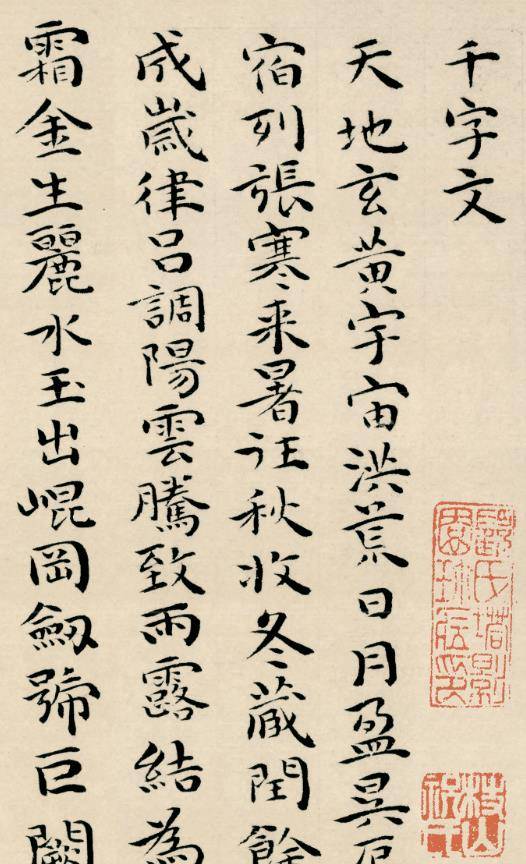 千字文
天地玄黄宇宙洪荒日月盈昃
宿列張寒来暑往秋收冬蔵閏餘
成歲律呂調陽雲騰致雨露結為
霜金生麗水玉出崐岡劔號巨闕
劉氏塔影
園珍藏印
枝山